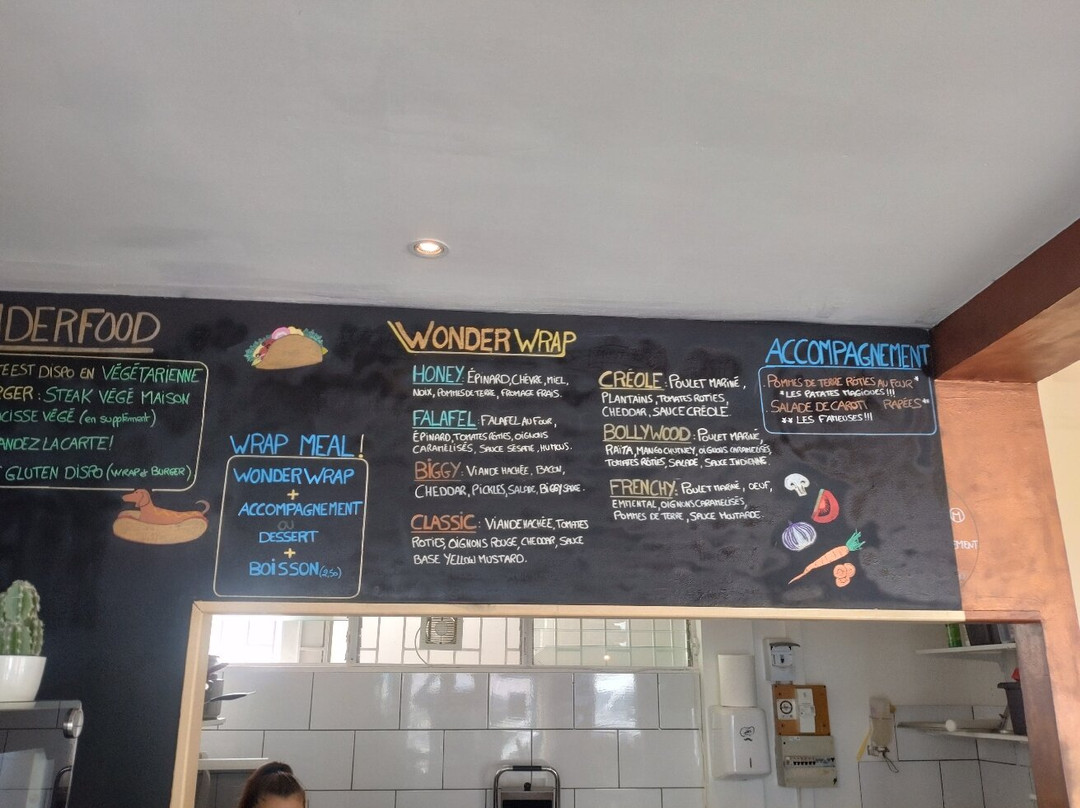 DERFOOD
TEEST DISPO EN VÉGÉTARIENNE
RGER : STEAK VÉGÉ MAISON
CISSE VÉGÉ (en supplément)
ANDEZ LA CARTE !
GLUTEN DISPO (WRAP & BURGER)
WRAP MEAL !
WONDER WRAP
+
ACCOMPAGNEMENT
OU
DESSERT
+
BOISSON (2,50)
WONDER WRAP
HONEY : ÉPINARD, CHÈVRE, MIEL,
NOIX, POMMES DE TERRE, FROMAGE FRAIS.
FALAFEL : FALAFEL AU FOUR,
ÉPINARD, TOMATES RÔTIES, OIGNONS
CARAMÉLISÉS, SAUCE SÉSAME, HUMUS.
BIGGY : VIANDE HACHÉE, BACON,
CHEDDAR, PICKLES, SALADE, BIGGY SAUCE.
CLASSIC : VIANDE HACHÉE, TOMATES
ROTIES, OIGNONS ROUGE, CHEDDAR, SAUCE
BASE YELLOW MUSTARD.
CRÉOLE : POULET MARINÉ,
PLANTAINS, TOMATES ROTIES,
CHEDDAR, SAUCE CRÉOLE.
BOLLYWOOD : POULET MARINÉ,
RAÏTA, MANGO CHUTNEY, OIGNONS CARAMELISÉS,
TOMATES RÔTIES, SALADE, SAUCE INDIENNE.
FRENCHY : POULET MARINÉ, OEUF,
EMMENTAL, OIGNONS CARAMELISÉS,
POMMES DE TERRE, SAUCE MOUTARDE.
ACCOMPAGNEMENT
. POMMES DE TERRE RÔTIES AU FOUR *
* LES PATATES MAGIQUES !!!
. SALADE DE CAROTT RAPÉES **
** LES FAMEUSES !!!